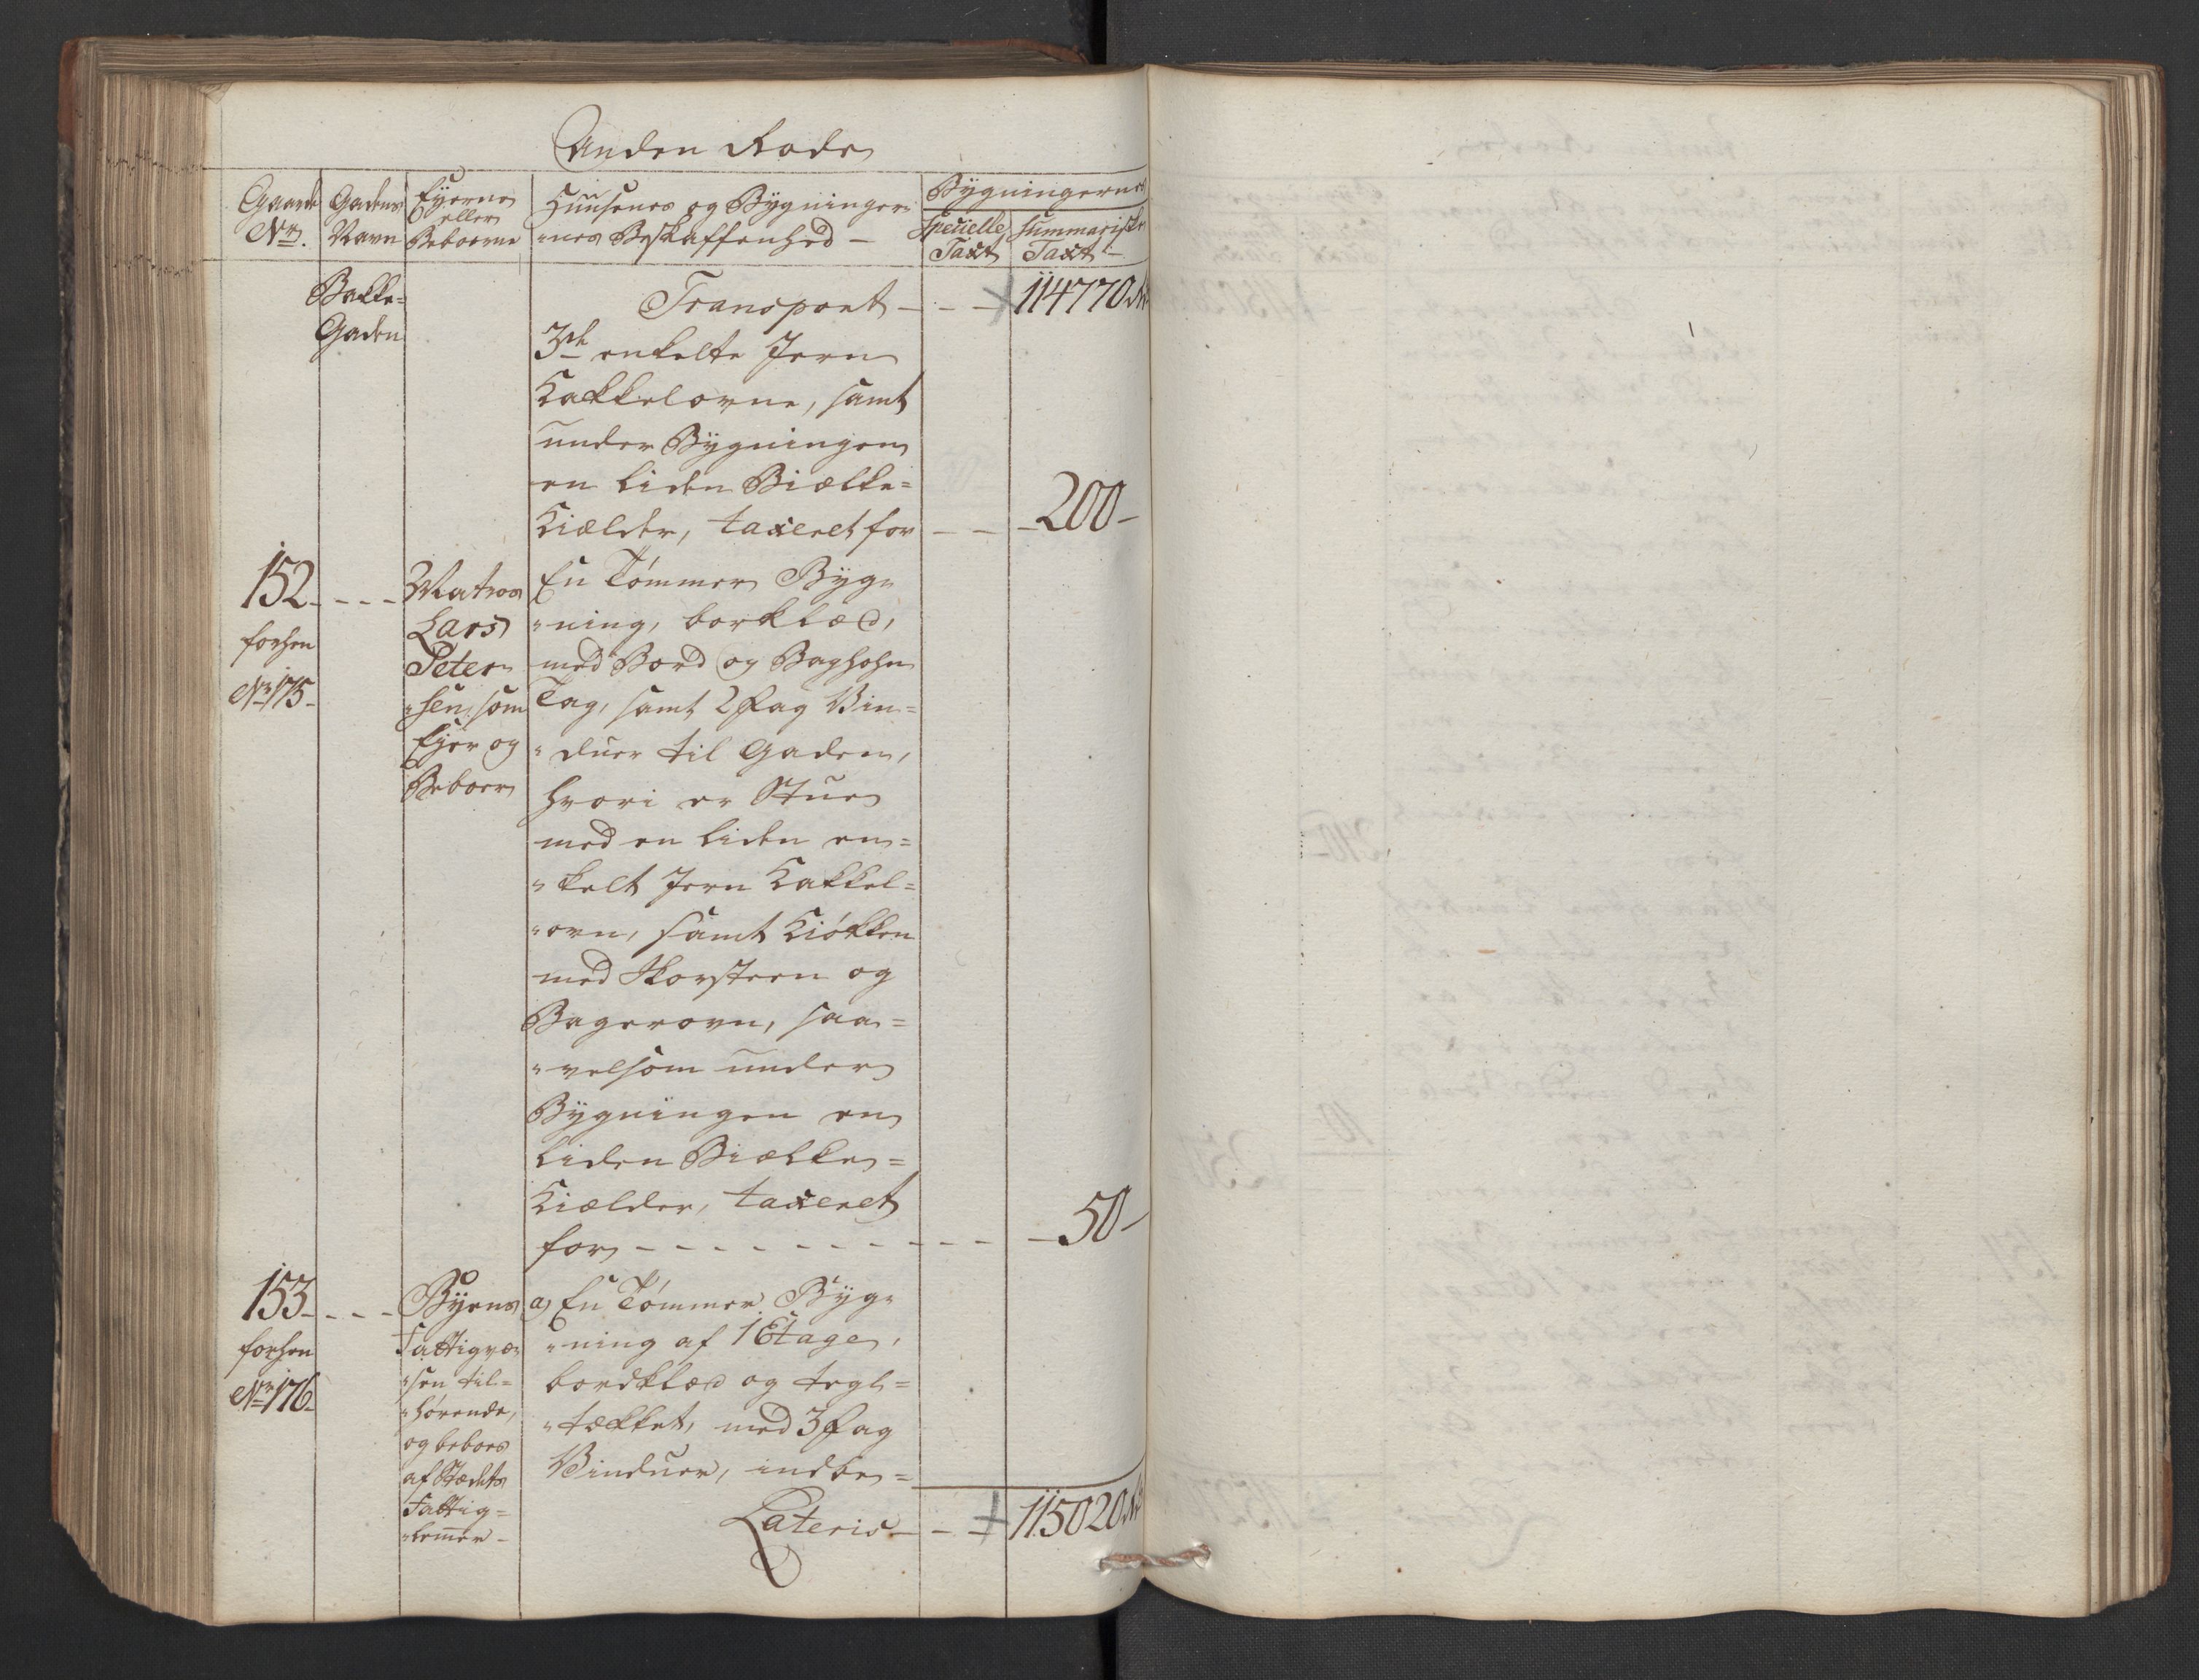 Anden Rode
Gaards No.
Gadens Navn
Eyerne eller Beboerne
Huusenes og Bygninger-
"nes Beskaffenhed -
Bygningernes
Specielle Taxt
Summariske Taxt
Bakke=
Gaden
Transport - - - 114770 Rd
3de enkelte Jern
Kakkelovne, samt
under Bygningen
en liden Biælke=
Kiælder, taxeret for - - - 200 -
152 - - - -
forhen
No 175 -
Matros
Lars
Peter-
"sen, som
Eyer og
Beboer
En Tømmer Byg-
"ning, bordklæd,
med Bord og Baghohn
Tag, samt 2 Fag Vin=
"duer til Gaden,
hvori er Stue
med en liden en=
"kelt Jern Kakkel=
"ovn, samt Kiøkken
med Skorsteen og
Bagerovn, saa=
"velsom under
Bygningen en
liden Biælke=
Kiælder, taxeret
for - - - - - - - - - - 50 -
153 - - - -
forhen
No 176 -
Byens
Fattigvæ-
"sen til=
"hørende,
og beboes
af Stædets
Fattig=
"lemer -
a) En Tømmer Byg-
"ning af 1 Etage,
bordklæd og tegl=
"tækket, med 3 Fag
Vinduer, indbe=
Lateris - - - 115020 Rd